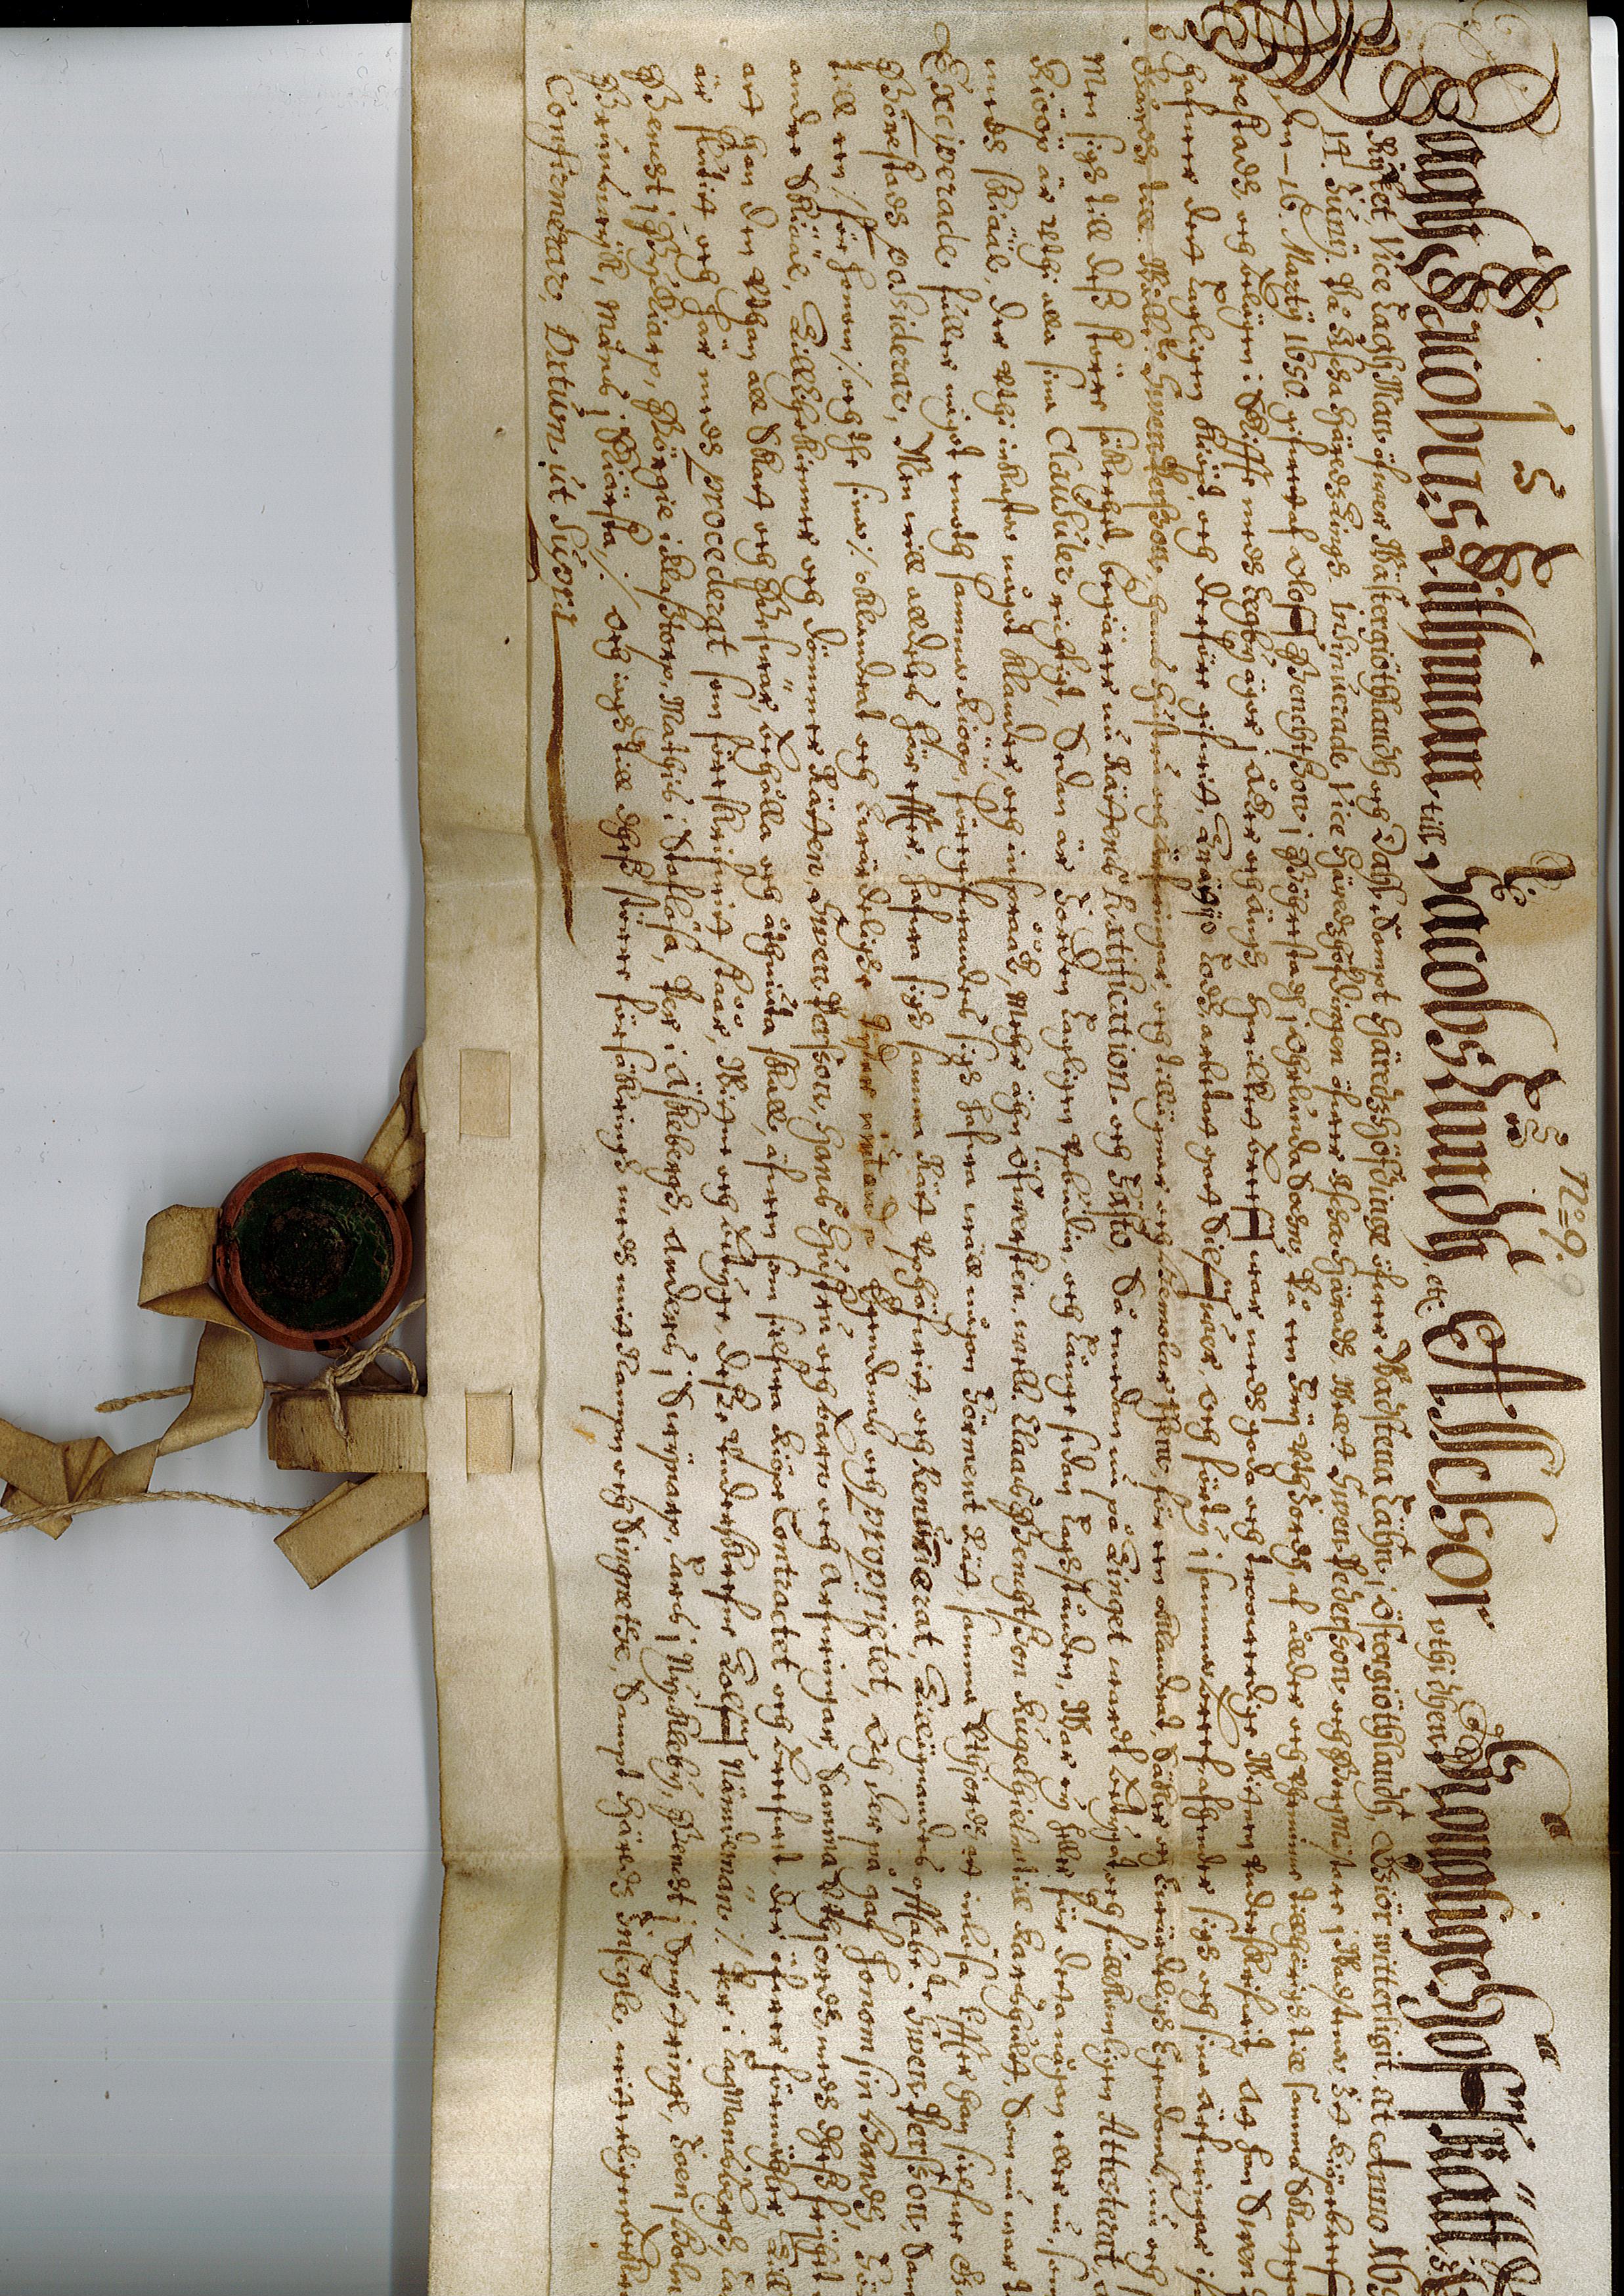 No 9. 9
Jagh Jacobus Lithman till Jacobslundh, etc. Assessor vthi dhen Kongligehoffrätt i
Ryket, Vice Lagh Man öfwer Wästergiöthlandh och Dahl, Sampt Häredzhöfdinge öfwer Wadstena Lähn j Östergiöthlandh, Giör witterligit. at Anno 165
14. Juny. På Aska Häredz Tingh. Insinuerade Vice Häredzhöfdingen öfwer Aska Häradh, Well:t Swen Pedersson och Borgmästare j Wadstena, Itt Kiöpebreef
den 16. Marty 1650. gifwet af Olof Benchtsson j Böhrestadh j Ohrlunda Sochn, På een Fry Vth Jordh, af ållder och Vhrminne tillhörigh, till samma Skattega
restadh, och belägen i Skiffte medh Eegby ägor j Åker och Ängh, Hwilket breef war medh goda och troowerdige Wittnen Vnderskrifwit, Att han Swen
hafwer dett Lagligen Kiöpt, och derföre gifwitt, Trättijo Lodh, arbetatt gott Silfwer, och förty j samma breef, afhender sigh och sina Ärfwingar ifr
Gårdh, till Wälbe:te Swen Persson, hans Hustru och Ärfwingar, och tillägnar och Hemolar Them, för een oklandrat, Säker och Ewärdeligh Egendomb, nu och
Men sigh till dess större säkerhet, begiärer nu Rättens Ratification och Fästo, Så emedan nu på Tinget wardt betygat, och fullkomligen Attesterat,
Kiööp är Vthi alla sina Clausuler richtigt, Sedan är Jorden Lagligen Vpbudin, och Länge sedan Laghstånden, War ey heller för detta någon eller nu, som
medh skiääl, der Vthi inkasta något klander, och insprååk, Mehr ähn Öfwersten. welb. Claes Benchtsson Kugelhielm till Karshult, Som nu war t
Exciperade fuller något emoth samma Kiööp, föregifwandes sigh hafwa wäll någon Förment Rätt, samma Vthjordh att inlösa, Effter han sielfwe
Börestadh possiderar, Men will alldeles här effter, hafwa sigh samma Rätt Vphöfwitt, och Renuncierat, Tillägnandes offtabe:te Swen Persson, Sam
till een ./. för honom ./. och the sina ./. oklandrat och Ewärdelighe tyder niutande Egendomb och proprietet, Och der på gaf honom sin Handh, För
andre Skiääl, Tillkiennes och dömmer Rätten, Swen Persson, Hans Hustru och barn och Ärfwingar, Samma Vthjordh, medh dhess fryhet
att han den Vthan all Skatt och Beswär, behålla och åthniuta skall, äfwen som sielfwa Kiöpe Contractet och breefwet der öfwer förmähler, Till
är slutitt och här medh procederat som föreskrifwitt stååår, Wittne och betyge, desse Vnderskrefne Tolf Nämdemän ./. Per i LagMansbergh,
Bencht j Byckiarp, Börgie i Klasstorp, Mathis i Staflösa, Per i Äskebergh, Anders j Swynarp, Lars j Nyckleby, Bencht j Smystringe, Joen j Holm
Brunswyk, Måns j Skiärsta, ./. Och iagh till dhess större försäkringh medh mitt Nampn och Singnethe, Sampt Häredz Insegle, witterligen bekre
Confirmerar, Datum ut Supra